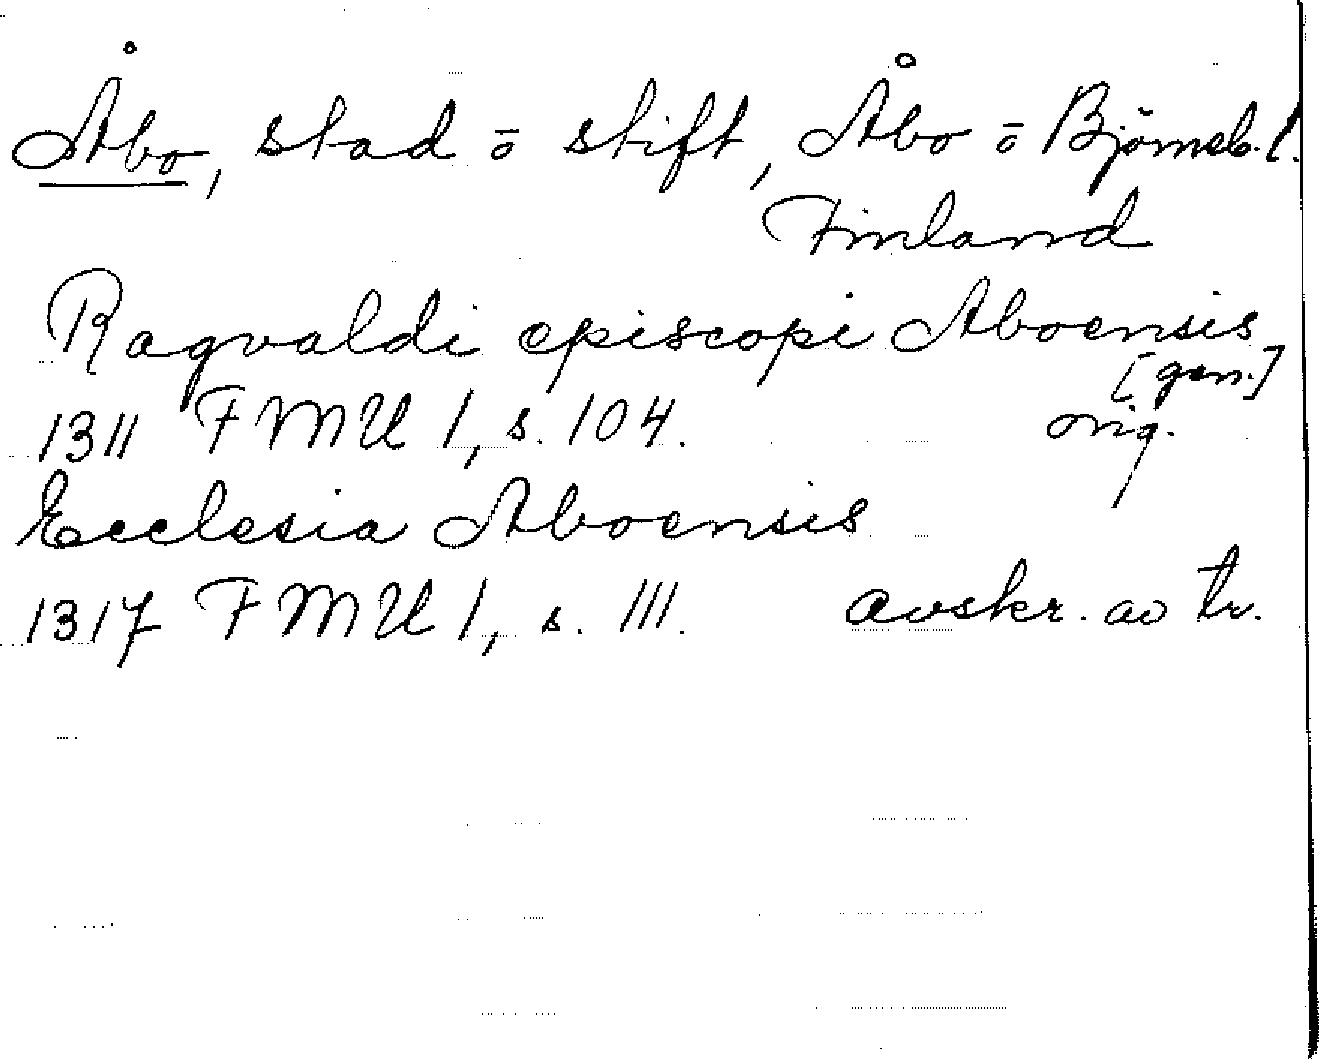 Åbo, stad ō stift, Åbo ō Björneb. l.
Finland
Ragvaldi episcopi Aboensis
[gen.]
1311 FMU 1, s. 104. orig.
Ecclesia Aboensis
1317 FMU 1, s. 111. avskr. av tr.